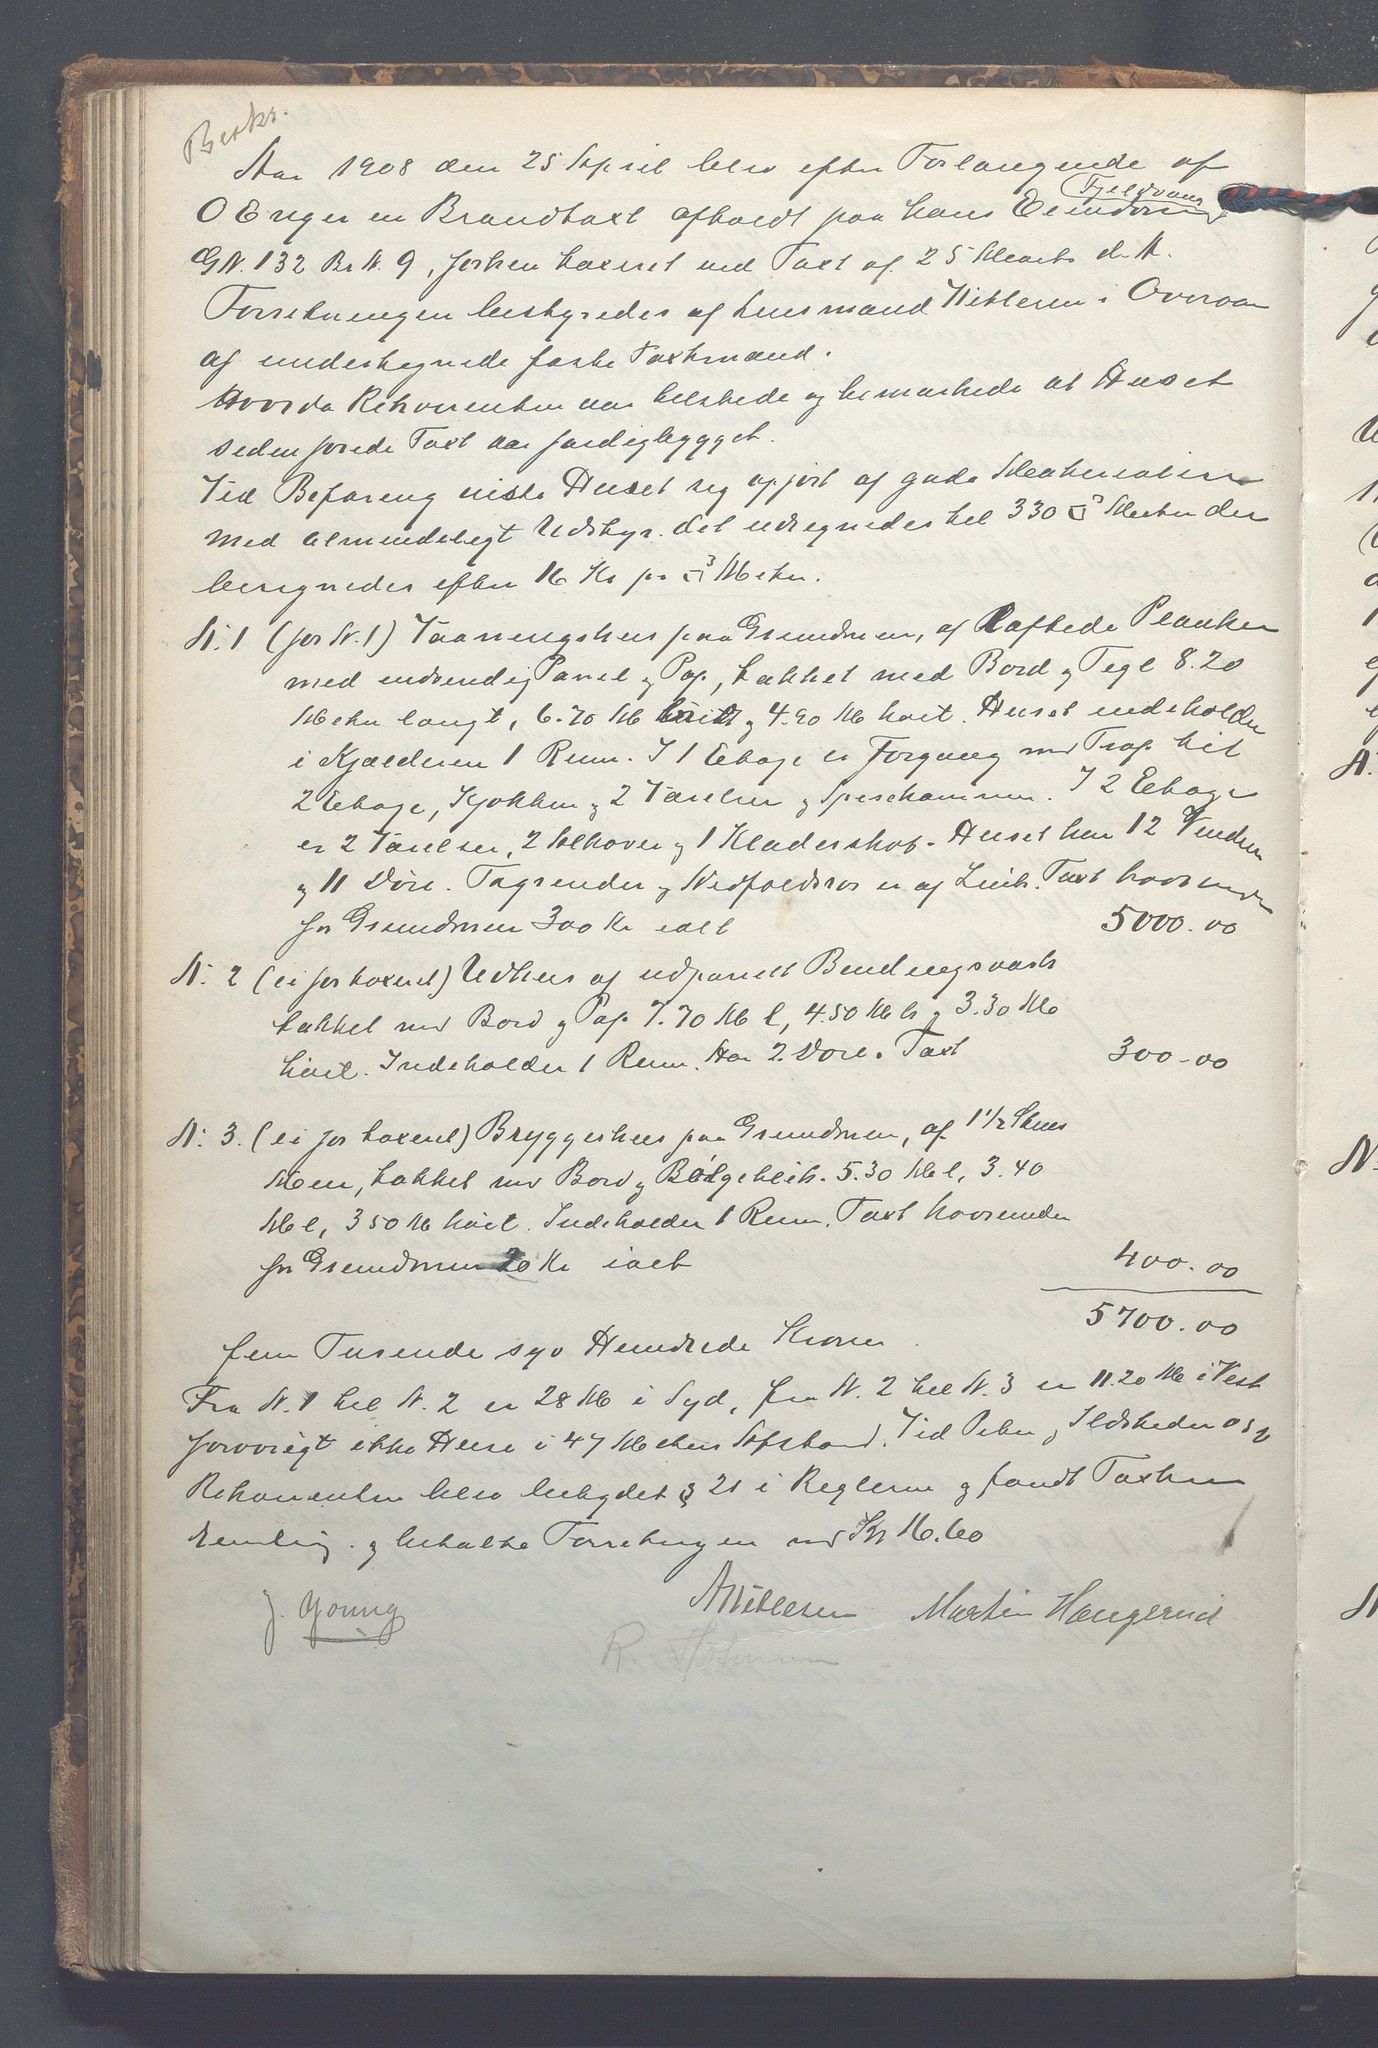 Beskr.
Aar 1908 den 25 April blev efter Forlangende af
O Enger en Brandtaxt afholdt paa hans Eiendom Fjeldvang
GN. 132 Br N. 9, forhen taxeret ved Taxt af 25 Marts d. A.
Forretningen bestyredes af Lensmand Willersen i Overvær
af undertegnede faste Taxtmænd.
Hvorda Rekvirenten var tilstede og bemærkede at Huset
siden forrige Taxt var færdigbygget.
Ved Befaring viste Huset sig opført af gode Materialier
med almindeligt Udstyr. Det udregnedes til 330 □3 Meter der
beregnedes efter 16 Kr pr □3 Meter.
N. 1 (før N. 1) Vaaningshus paa Grundmur, af Laftede Planker
med udvendig Panel og Pap, tækket med Bord og Tegl 8.20
Meter langt, 6.70 M bredt og 4.90 M høit. Huset indeholder
i Kjælderen 1 Rum. I 1 Etage er Forgang med Trap til
2 Etage, Kjøkken og 2 Værelser og Spisekammer. I 2 Etage
er 2 Værelser, 2 Alkover og 1 Kladerskab. Huset har 12 Vinduer
og 11 Døre. Tagrender og Nedfaldsrør er af Zink. Taxt hvorunder
for Grundmuren 300 Kr ialt 5000.00
N. 2 (ei før taxeret) Udhus af udpanelt Bindingsværk
tækket med Bord og Pap 7.70 M l, 4.50 M b og 3.30 M
høit. Indeholder 1 Rum. Har 2 Døre. Taxt 300-00
N. 3. (ei før taxeret) Bryggerhus paa Grundmur, af 1 1/2 Stens
Mur, tækket med Bord og Bølgeblik. 5.30 M l, 3.40
M l, 3 50 M høit. Indeholder 1 Rum. Taxt hvorunder
for Grundmuren 20 Kr ialt 400.00
5700.00
fem Tusende syv Hundrede Kroner
Fra N. 1 til N. 2 er 28 M i Syd, fra N. 2 til N. 3 er 11.20 M i Vest
forøvrigt ikke Huse i 47 Meters Afstand. Ved Piber og Ildsteder osv
Rekvirenten blev betydet § 21 i Reglerne og fandt Taxten
remlig og betalte Forretningen med Kr 16.60
J. Young
A Willersen Martin Haugerud
R.